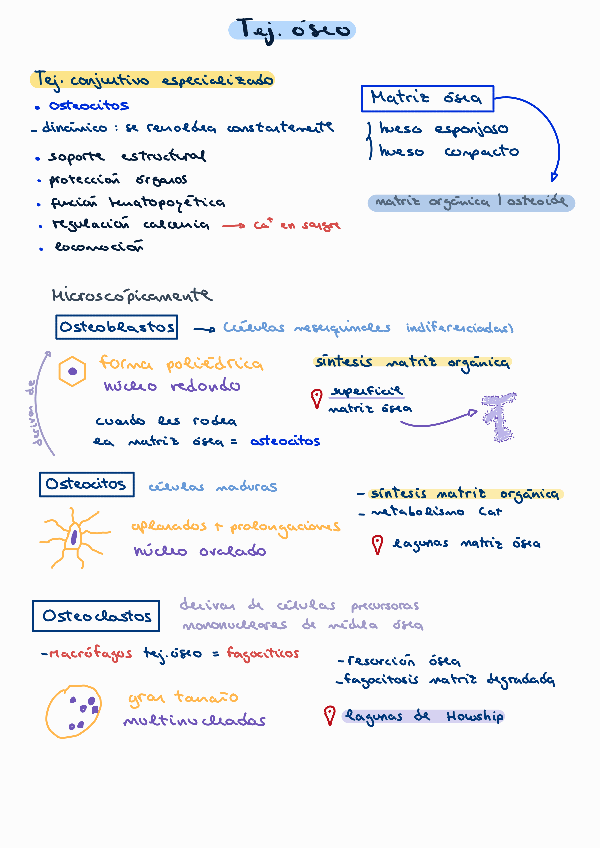 Tej. óseo
Tej. conjuntivo especializado
• osteocitos
- dinámico : se remodela constantemente
• soporte estructural
• protección órganos
• función hematopoyética
• regulación calcemia → Ca+ en sangre
• locomoción
Matriz ósea
hueso esponjoso
hueso compacto
matriz orgánica | osteoide
Microscópicamente
Osteoblastos → (células mesenquimales indiferenciadas)
derivan de
forma poliédrica
núcleo redondo
síntesis matriz orgánica
superficie
matriz ósea
cuando les rodea
la matriz ósea = osteocitos
Osteocitos células maduras
aplanados + prolongaciones
núcleo ovalado
- síntesis matriz orgánica
- metabolismo Ca+
lagunas matriz ósea
Osteoclastos
derivan de células precursoras
mononucleares de médula ósea
- Macrófagos tej. óseo = fagocíticos
gran tamaño
multinucleadas
- resorción ósea
- fagocitosis matriz degradada
lagunas de Howship